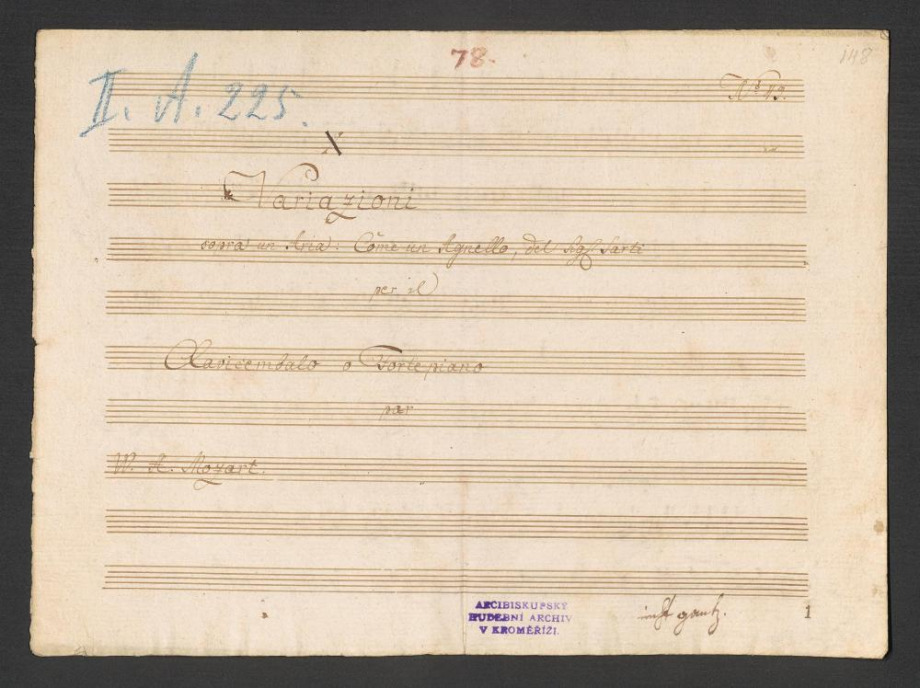 78.
148
II. A. 225.
X
Variazioni
sopra un Aria: Come un Agnello, del Sigr Sarti
per il
Clavicembalo o Fortepiano
par
W. A. Mozart.
ARCIBISKUPSKÝ
HUDEBNÍ ARCHIV
V KROMĚŘÍŽI.
1